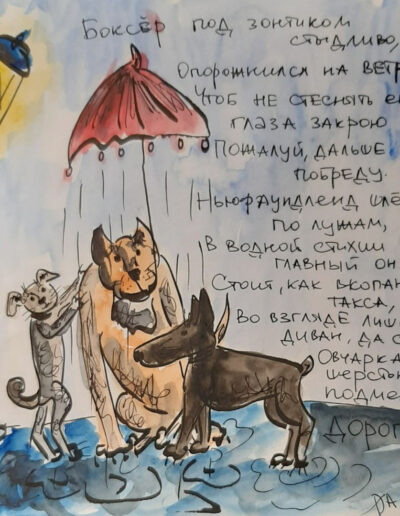 Боксёр под зонтиком
стыдливо,
Опорожнился на ветр
Чтоб не стеснять е
глаза закрою
Пожалуй, дальше
побреду.
Ньюфаундленд шлё
по лужам,
В водной стихии
главный он
Стоит, как вкопан
такса,
Во взгляде лиш
диван, да с
Овчарка
шерстью
подме
дорог